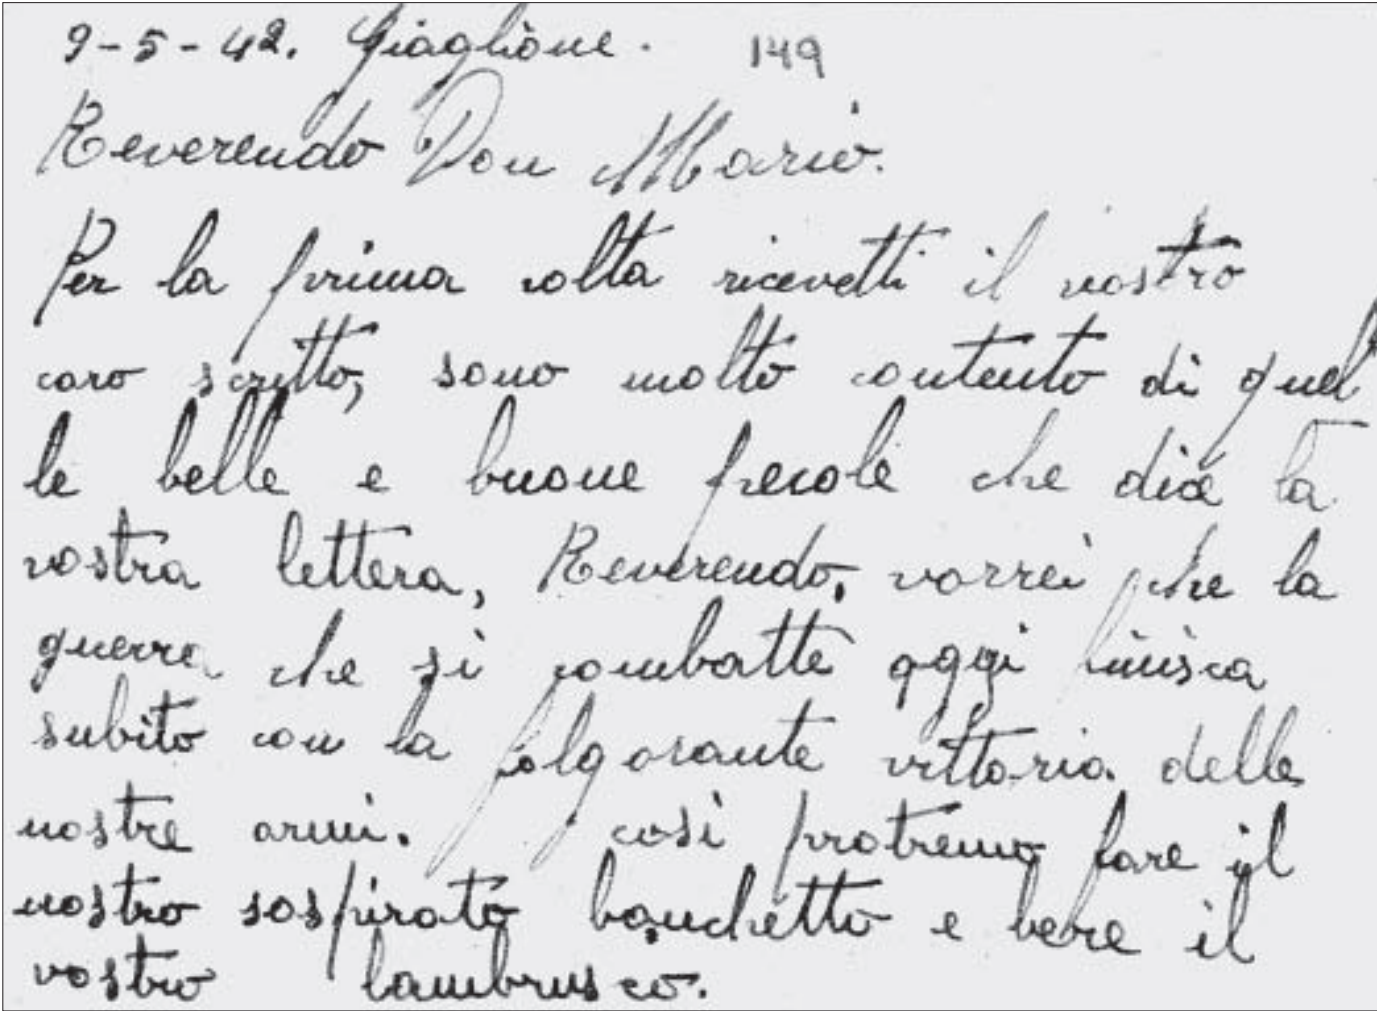 9-5-42. Giaglione. 149
Reverendo Don Mario.
Per la prima volta ricevetti il vostro
caro scritto, sono molto contento di quel
le belle e buone perole che dice la
vostra lettera, Reverendo, vorrei che la
guerra che si combatte oggi finisca
subito con la folgorante vittoria delle
nostre armi. così protremo fare il
nostro sospirato banchetto e bere il
vostro lambrusco.